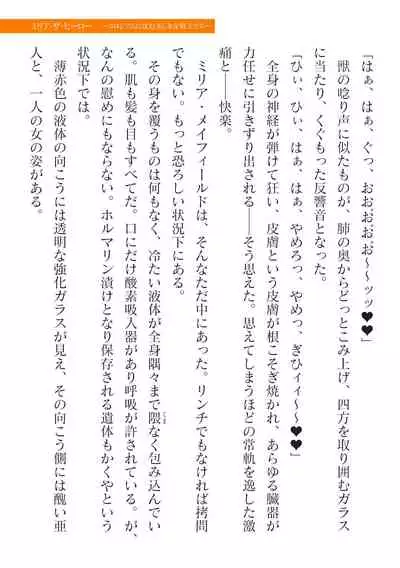 ミリア・ザ・ヒーロー
「はぁ、はぁ、ぐっ、おおおおお～～ッッ♥♥」
獣の唸り声に似たものが、肺の奥からどっとこみ上げ、四方を取り囲むガラス
に当たり、くぐもった反響音となった。
「ひぃ、ひぃ、はぁ、はぁ、やめろっ、やめっ、ぎひィィ～～♥♥」
全身の神経が弾けて狂い、皮膚という皮膚が根こそぎ焼かれ、あらゆる臓器が
力任せに引きずり出される――そう思えた。思えてしまうほどの常軌を逸した激
痛と――快楽。
ミリア・メイフィールドは、そんなただ中にあった。リンチでもなければ拷問
でもない。もっと恐ろしい状況下にある。
その身を覆うものは何もなく、冷たい液体が全身隅々まで隈なく包み込んでい
る。肌も髪も目もすべてだ。口にだけ酸素吸入器があり呼吸が許されている。が、
なんの慰めにもならない。ホルマリン漬けとなり保存される遺体もかくやという
状況下では。
薄赤色の液体の向こうには透明な強化ガラスが見え、その向こう側には醜い亜
人と、一人の女の姿がある。